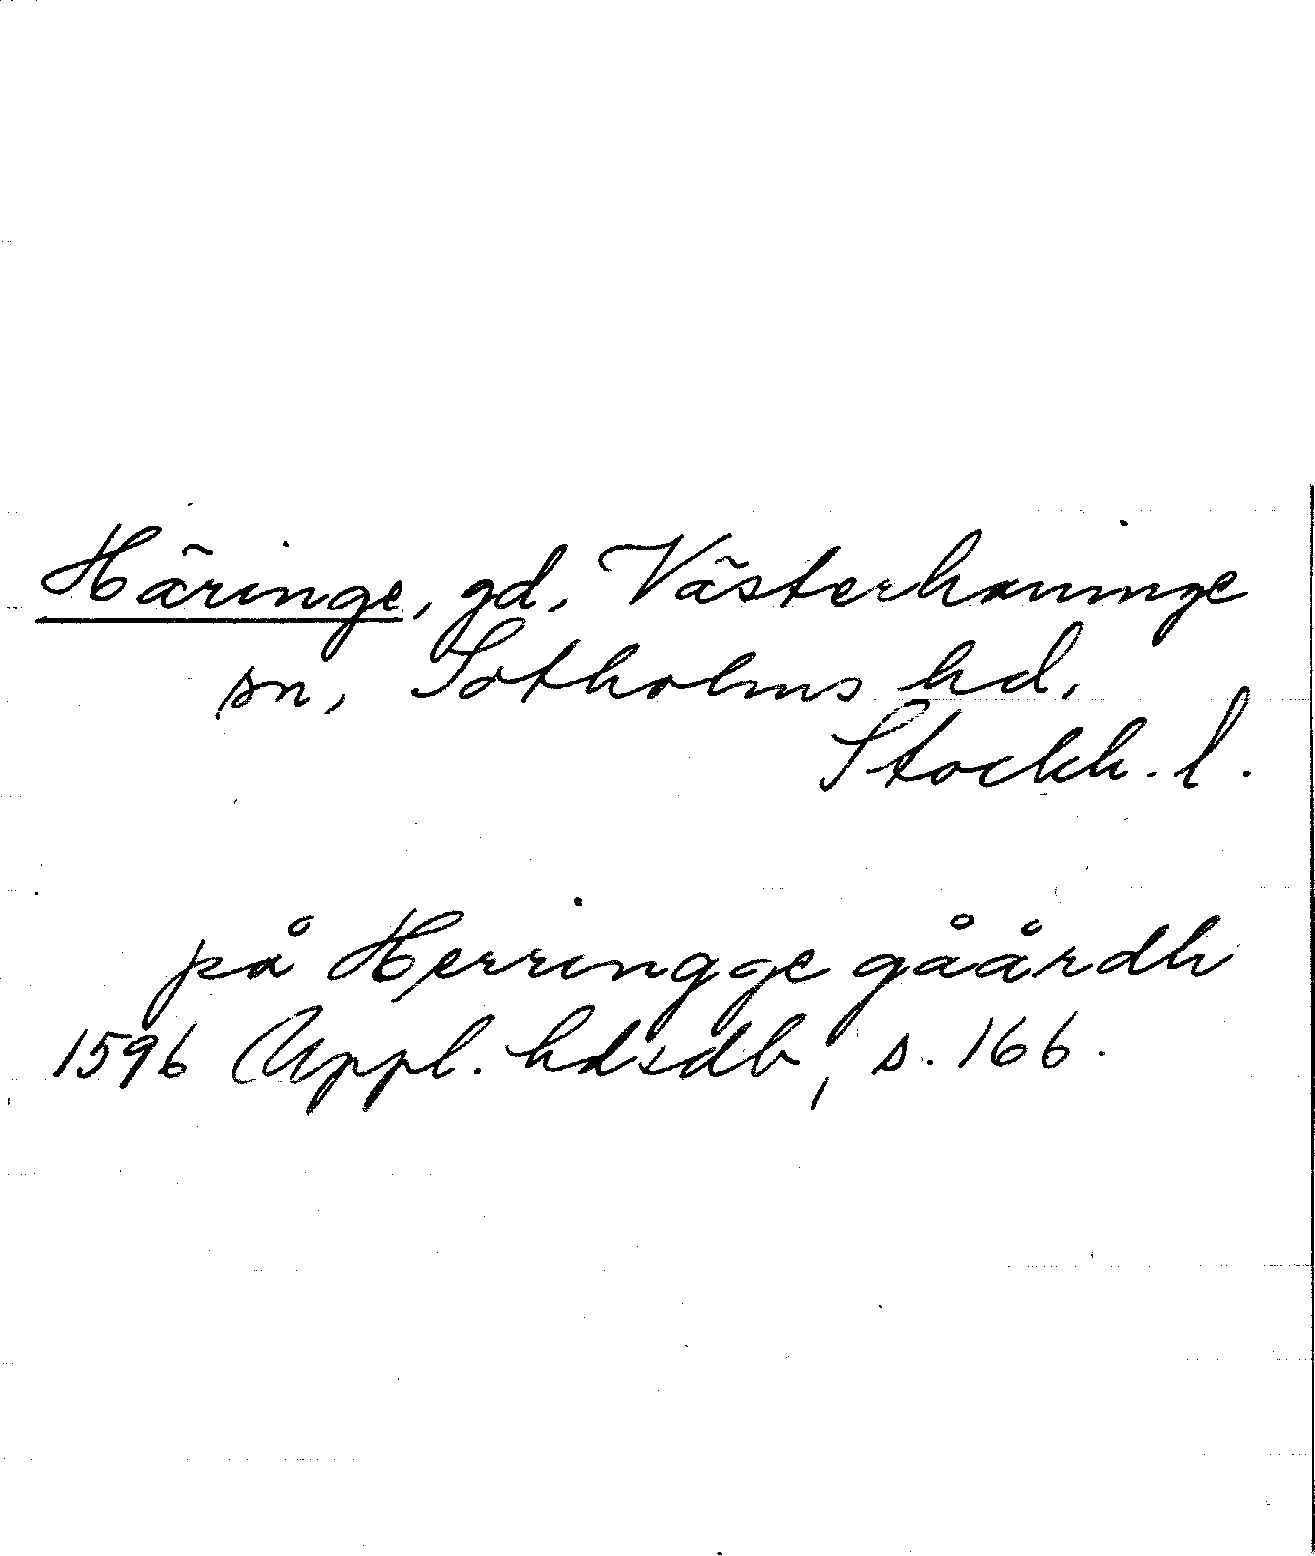 Häringe, gd, Västerhaninge
sn, Sotholms hd,
Stockh. l.
på Herringge gåårdh
1596 Uppl. hdsdb, s. 166.